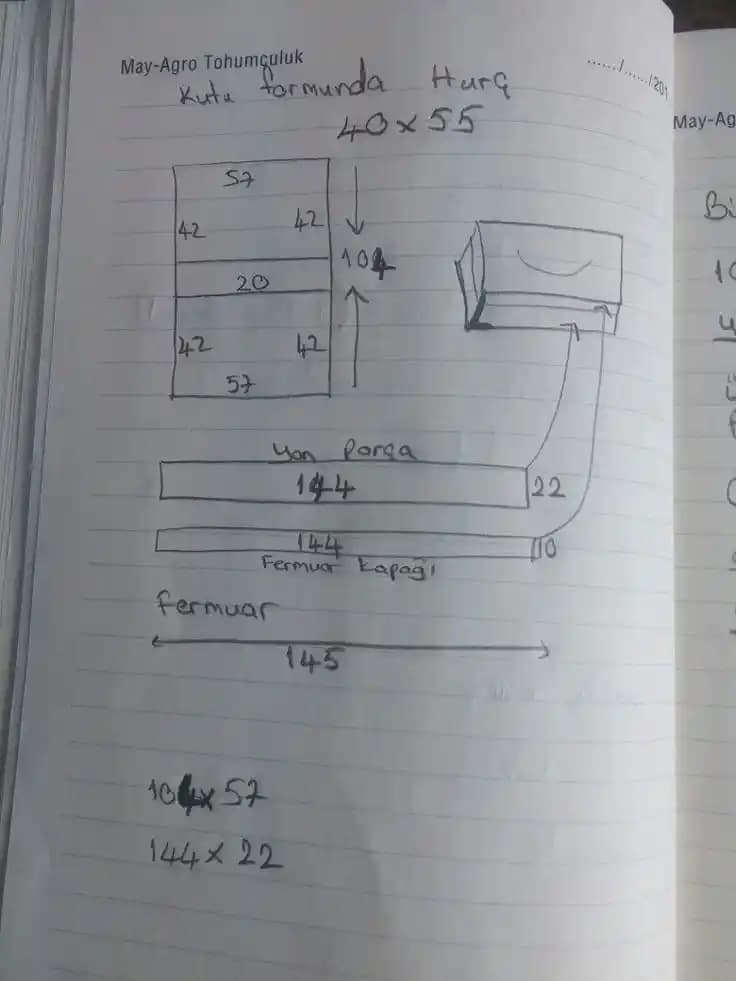 May-Agro Tohumçuluk
....../....../201
Kutu formunda Hurç
40 x 55
57
42 42
104
20
42 42
57
Yan Parça
144
22
144
10
Fermuar Kapağı
fermuar
145
104 x 57
144 x 22
May-Ag
Bi
10